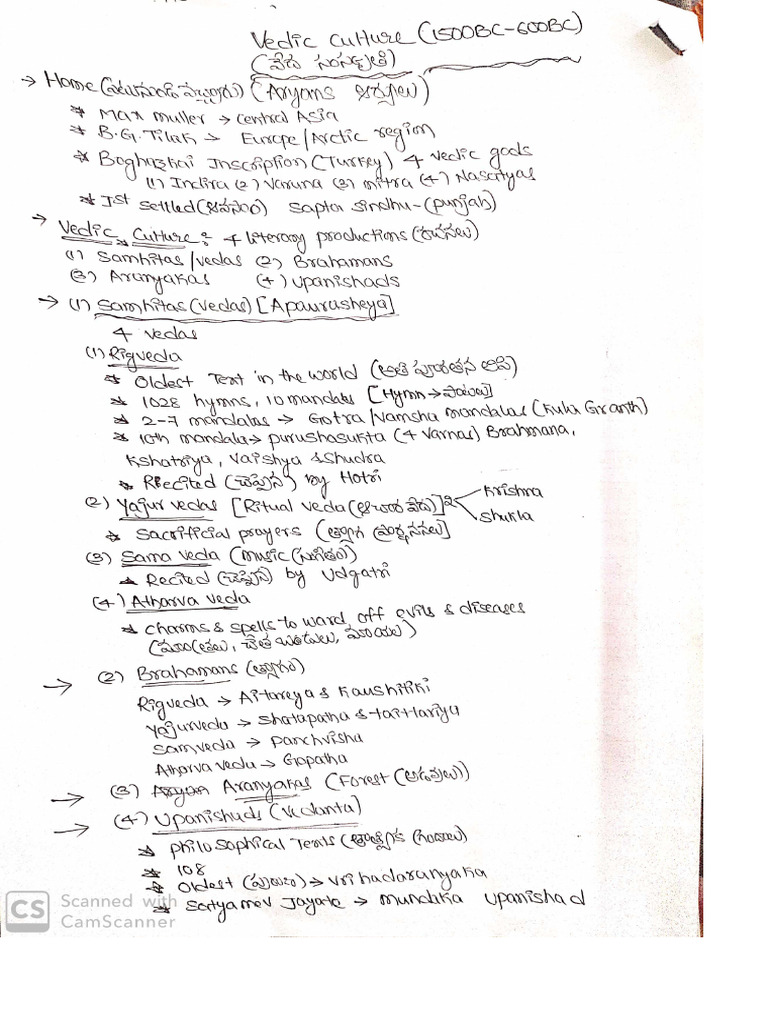 Vedic Culture (1500BC-600BC)
(వేద సంస్కృతి)
→ Home (Aryans ఆర్యులు)
* Max muller → central Asia
* B.G.Tilak → Europe/Arctic region
* Boghazkai Inscription (Turkey) 4 vedic gods
(1) Indira (2) Varuna (3) mitra (4) Nasatyas
* Ist settled (నివాసం) Sapta Sindhu-(punjab)
→ Vedic Culture: 4 literary productions (రచనలు)
(1) Samhitas/vedas (2) Brahamans
(3) Aranyakas (4) upanishads
→ (1) Samhitas (vedas) [Apaurasheya]
4 vedas
(1) Rigveda
* Oldest Text in the world (అతి పురాతన)
* 1028 hymns, 10 mandals [Hymn→]
* 2-7 mandalas → Gotra/Vamsha mandalas (Granth)
* 10th mandala → purushasukta (4 varnas) Brahmana,
Kshatriya, Vaishya & Shudra
* Recited (చెప్పిన) by Hotri
(2) Yajur vedas [Ritual veda] 2 Krishna
Shukla
* Sacrificial prayers
(3) Sama veda (music (సంగీతం)
* Recited (చెప్పిన) by Udgatri
(4) Atharva veda
* charms & spells to ward off evils & diseases
→ (2) Brahamans
Rigveda → Aitareya & Kaushitiki
Yajurveda → Shatapatha & taittariya
Samveda → Panchvisha
Atharva veda → Gopatha
→ (3) Aranyakas (Forest (అడవులు))
→ (4) Upanishads (Vedanta)
* philosophical Texts
* 108
* Oldest → vrihadaranyaka
* Satyamev Jayate → mundaka upanishad
CS Scanned with
CamScanner